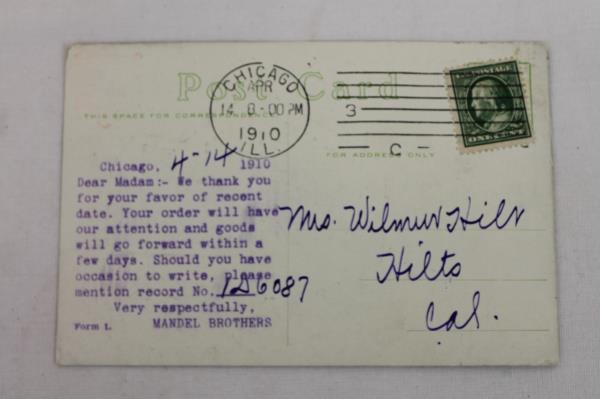 Post Card
THIS SPACE FOR CORRESPONDENCE
FOR ADDRESS ONLY
CHICAGO
APR
14 8-00 PM
1910
ILL.
3
C
POSTAGE
ONE CENT
Chicago, 4-14 1910
Dear Madam:- We thank you
for your favor of recent
date. Your order will have
our attention and goods
will go forward within a
few days. Should you have
occasion to write, please
mention record No. 126087
Very respectfully,
Form L. MANDEL BROTHERS
Mrs. Wilmur Hilt
Hilts
Cal.